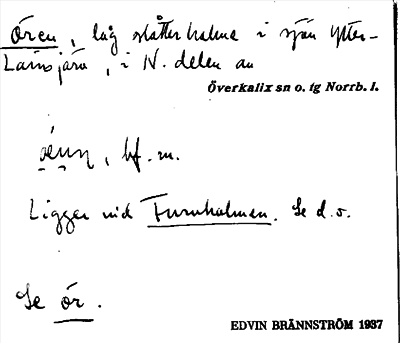 Ören, låg slåtterholme i sjön Ytter-
Lainsjärv, i N. delen av
Överkalix sn o. tg Norrb. l.
bf. m.
Ligger vid Furuholmen. Se d.o.
Se ör.
EDVIN BRÄNNSTRÖM 1937